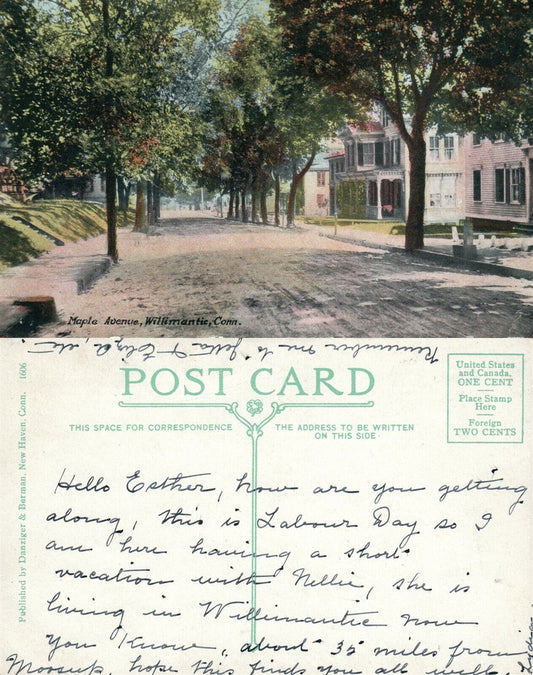 Maple Avenue, Willimantic, Conn.
Remember me to Jetta & Eliza, etc.
POST CARD
THIS SPACE FOR CORRESPONDENCE
THE ADDRESS TO BE WRITTEN
ON THIS SIDE
United States
and Canada,
ONE CENT
Place Stamp
Here
Foreign
TWO CENTS
Published by Danziger & Berman, New Haven, Conn. 1606
Hello Esther, how are you getting
along, this is Labour Day so I
am here having a short
vacation with Nellie, she is
living in Willimantic now
you know, about 35 miles from
Moosup, hope this finds you all well,